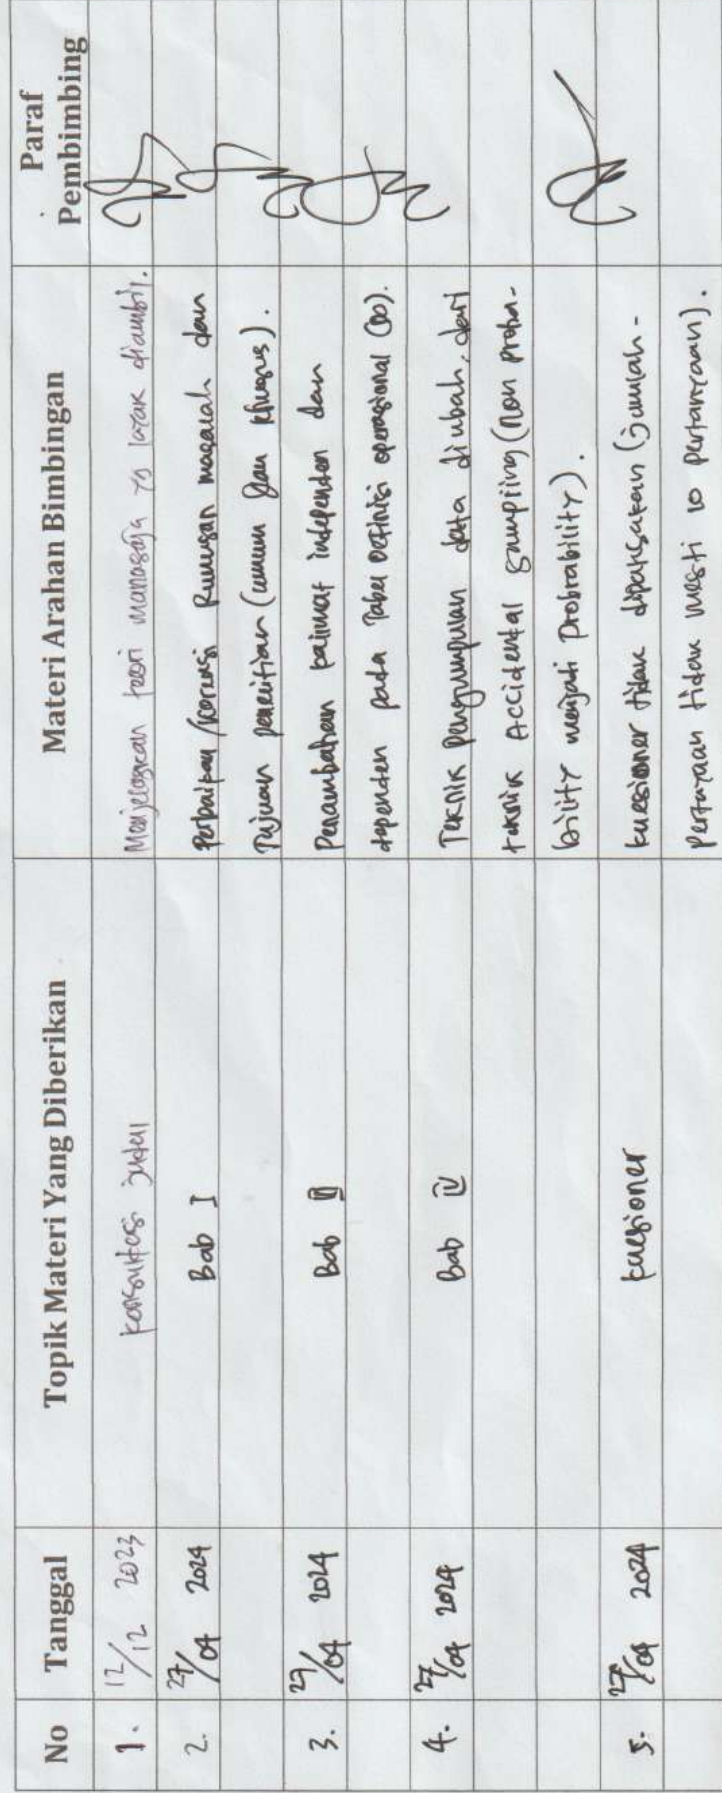 No Tanggal Topik Materi Yang Diberikan Materi Arahan Bimbingan Paraf Pembimbing
1. 12/12 2023 Konsultasi judul Menjelaskan teori manasaja yg layak diambil.
2. 27/04 2024 Bab I Perbaikan/koreksi Rumusan masalah dan
Tujuan penelitian (umum dan khusus).
3. 27/04 2024 Bab III Penambahan kalimat independen dan
dependen pada Tabel Definisi operasional (DO).
4. 27/04 2024 Bab IV Teknik pengumpulan data diubah, dari
teknik Accidental Sampling (Non proba-
bility menjadi Probrability).
5. 27/04 2024 kuesioner kuesioner tidak dipaksakan (jumlah -
pertanyaan tidak mesti 10 pertanyaan).